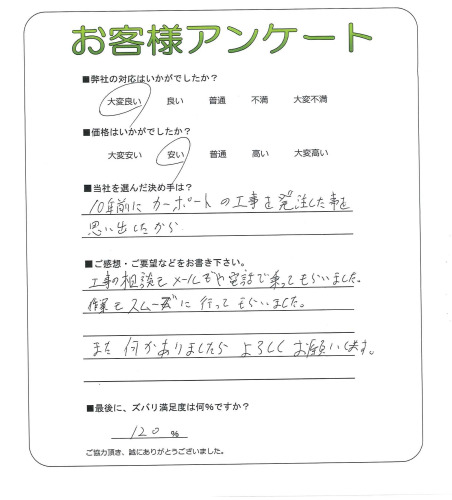 お客様アンケート
■弊社の対応はいかがでしたか？
大変良い 良い 普通 不満 大変不満
■価格はいかがでしたか？
大変安い 安い 普通 高い 大変高い
■当社を選んだ決め手は？
10年前に カーポートの工事を発注した事を
思い出したから
■ご感想・ご要望などをお書き下さい。
工事の相談もメールや電話で乗ってもらいました。
作業もスムーズに行ってもらいました。
また何かありましたらよろしくお願いします。
■最後に、ズバリ満足度は何％ですか？
120 ％
ご協力頂き、誠にありがとうございました。